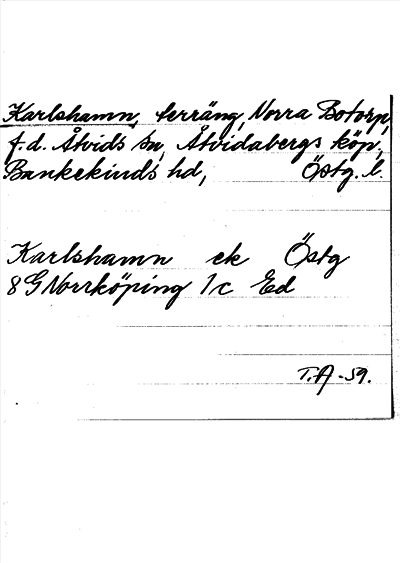 Karlshamn, terräng, Norra Botorp,
f.d. Åtvids sn, Åtvidabergs köp.,
Bankekinds hd, Östg. l.
Karlshamn ek Östg
8G Norrköping 1c Ed
T.A -59.